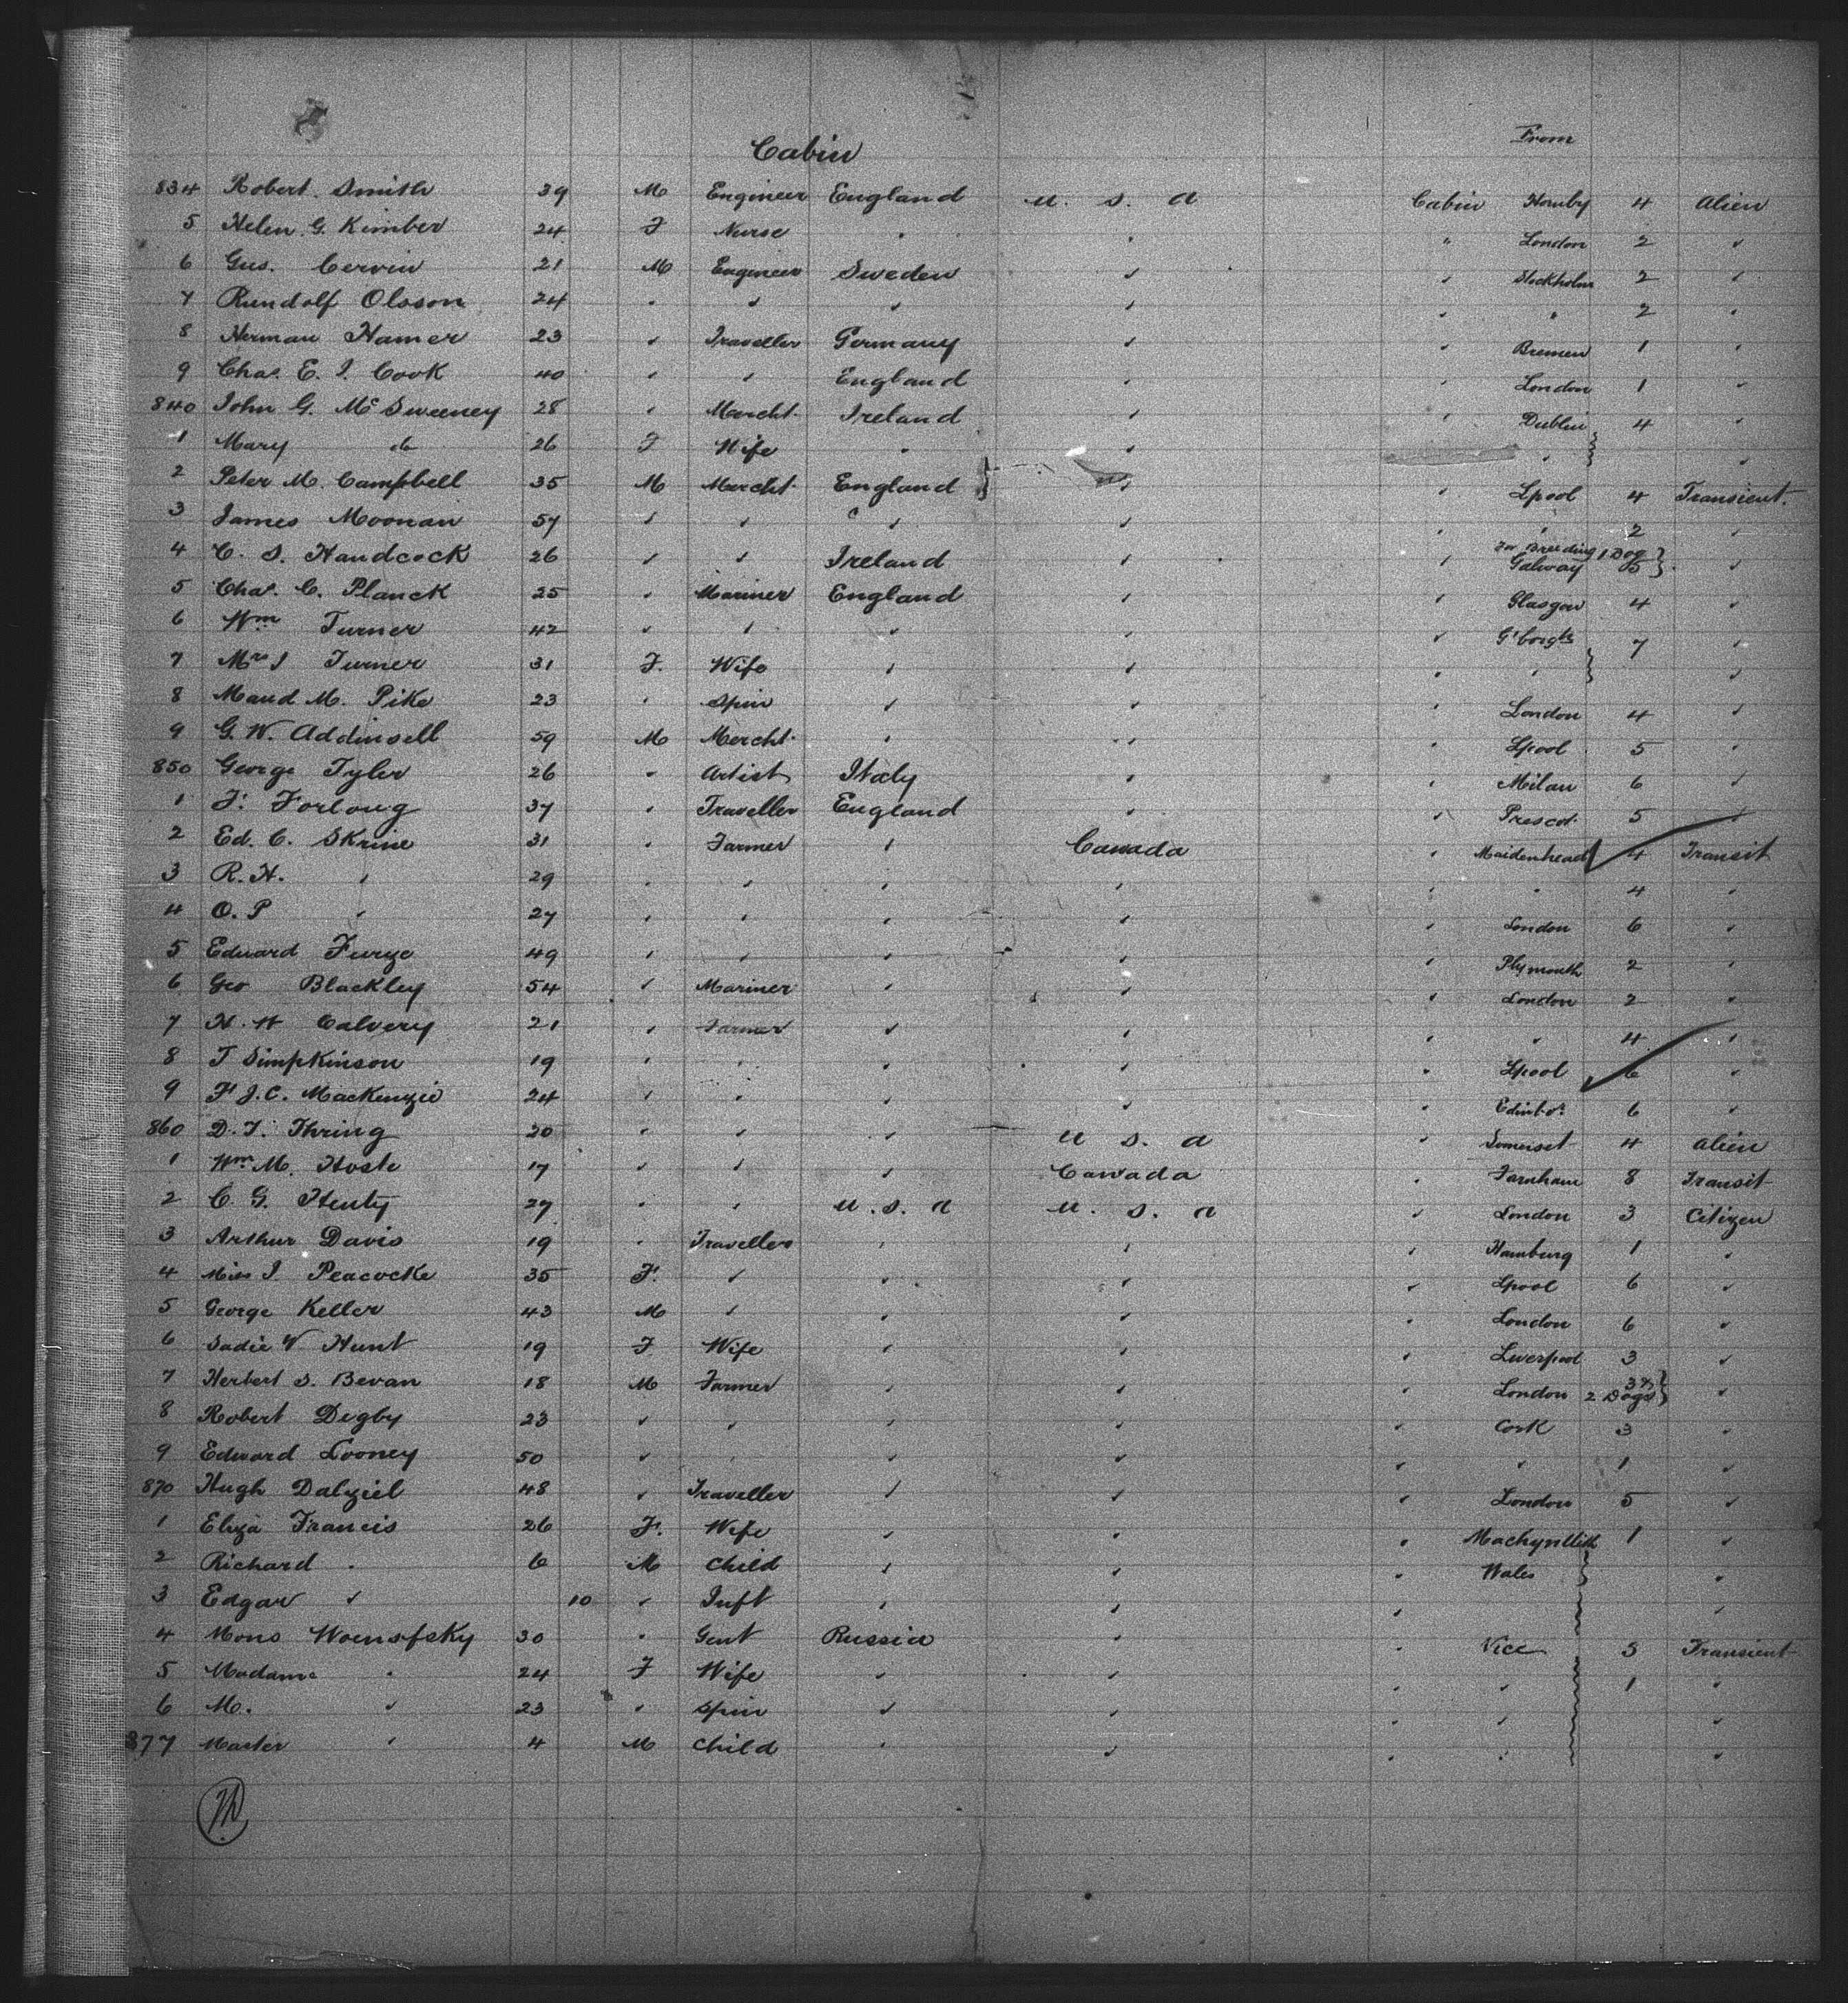 Cabin From
834 Robert Smith 39 M Engineer England U. S. A Cabin Hornby 4 Alien
5 Helen G. Kimber 24 F Nurse " " " London 2 "
6 Gus. Cervin 21 M Engineer Sweden " " Stockholm 2 "
7 Rundolf Olsson 24 " " " " " " 2 "
8 Herman Hamer 23 " Traveller Germany " " Bremen 1 "
9 Chas. E. I. Cook 40 " " England " " London 1 "
840 John G. McSweeney 28 " Mercht. Ireland " " Dublin 4 "
1 Mary do 26 F Wife " " " "
2 Peter M. Campbell 35 M Mercht. England " " Lpool 4 Transient.
3 James Moonan 57 " " " " " " 2 "
For Breeding 1 Dog
4 C. S. Handcock 26 " " Ireland " " Galway 5 "
5 Chas. C. Planck 25 " Mariner England " " Glasgow 4 "
6 Wm Turner 42 " " " " " 7 "
7 Mrs J Turner 31 F. Wife " " " " "
8 Maud M. Pike 23 " Spin " " " London 4 "
9 G. W. Addinsell 59 M Mercht. " " " Lpool 5 "
850 George Tyler 26 " Artist Italy " " Milan 6 "
1 F. Forlong 37 " Traveller England " " Prescot 5 "
2 Ed. C. Skrine 31 " Farmer " Canada " Maidenhead 4 Transit
3 R. H. " 29 " " " " " " 4 "
4 O. P " 27 " " " " " London 6 "
5 Edward Furge 49 " " " " " Plymouth 2 "
6 Geo Blackley 54 " Mariner " " " London 2 "
7 H. W Calvery 21 " Farmer " " " " 4 "
8 T Simpkinson 19 " " " " " Lpool 6 "
9 F J. C. Mackenzie 24 " " " " " Edinbo. 6 "
860 D. T. Thring 20 " " " U S. A " Somerset 4 Alien
1 Wm. M. Hoste 17 " " " Canada " Farnham 8 Transit
2 C. G. Henty 27 " " U. S. A U. S. A " London 3 Citizen
3 Arthur Davis 19 " Traveller " " " Hamburg 1 "
4 Miss I. Peacocke 35 F. " " " " Lpool 6 "
5 George Keller 43 M " " " " London 6 "
6 Sadie V Hunt 19 F Wife " " " Liverpool 3 "
7 Herbert S. Bevan 18 M Farmer " " " London 3 & 2 Dogs "
8 Robert Degby 23 " " " " " Cork 3 "
9 Edward Looney 50 " " " " " " 1 "
870 Hugh Dalziel 48 " Traveller " " " London 5 "
1 Eliza Francis 26 F. Wife " " " Machynllith 1 "
2 Richard " 6 M Child " " " Wales "
3 Edgar " 10 " Inft " " " "
4 Mons Woensfsky 30 " Gent Russia " " Nice 3 Transient
5 Madame " 24 F Wife " " " " 1 "
6 M. " 23 " Spin " " " " "
877 Master " 4 M Child " " " " "